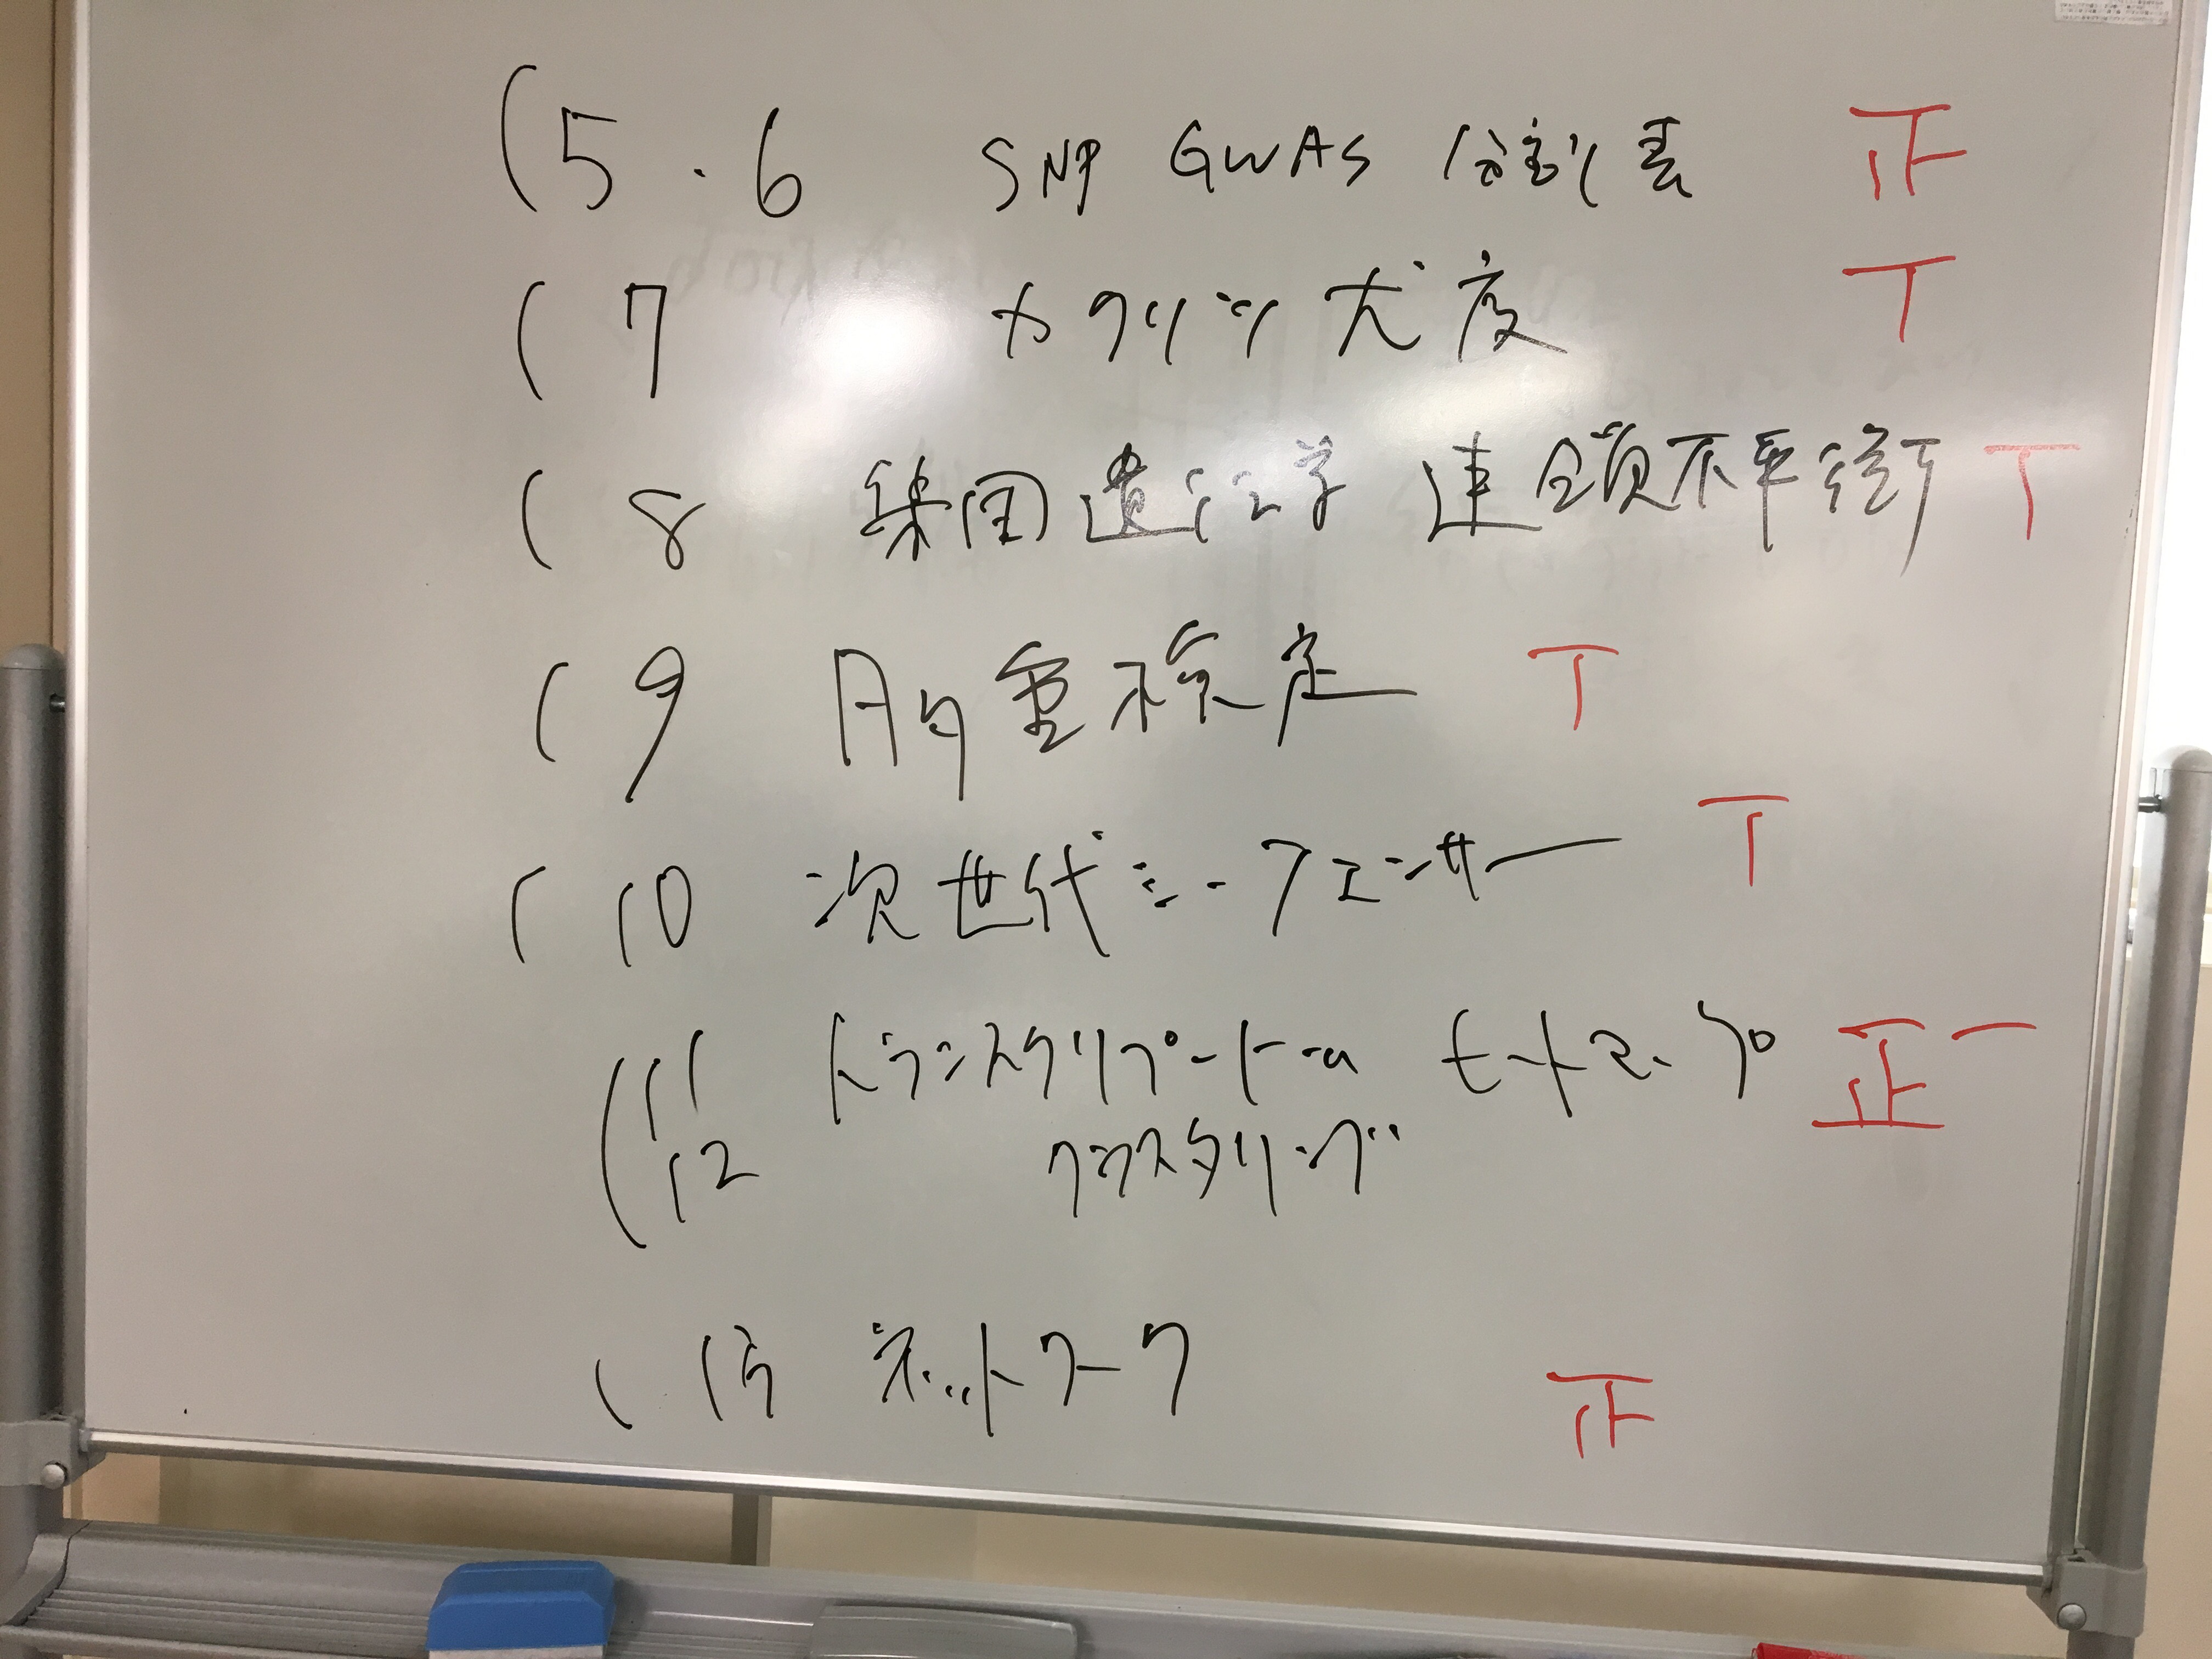 (5・6 SNP GWAS 分割表 正
(7 カタログ 尤度 T
(8 集団遺伝学 連鎖不平衡 T
(9 多重検定 T
(10 次世代シークエンサー T
(11 トランスクリプトーム ヒートマップ 正一
(12 クラスタリング
(13 ネットワーク 正